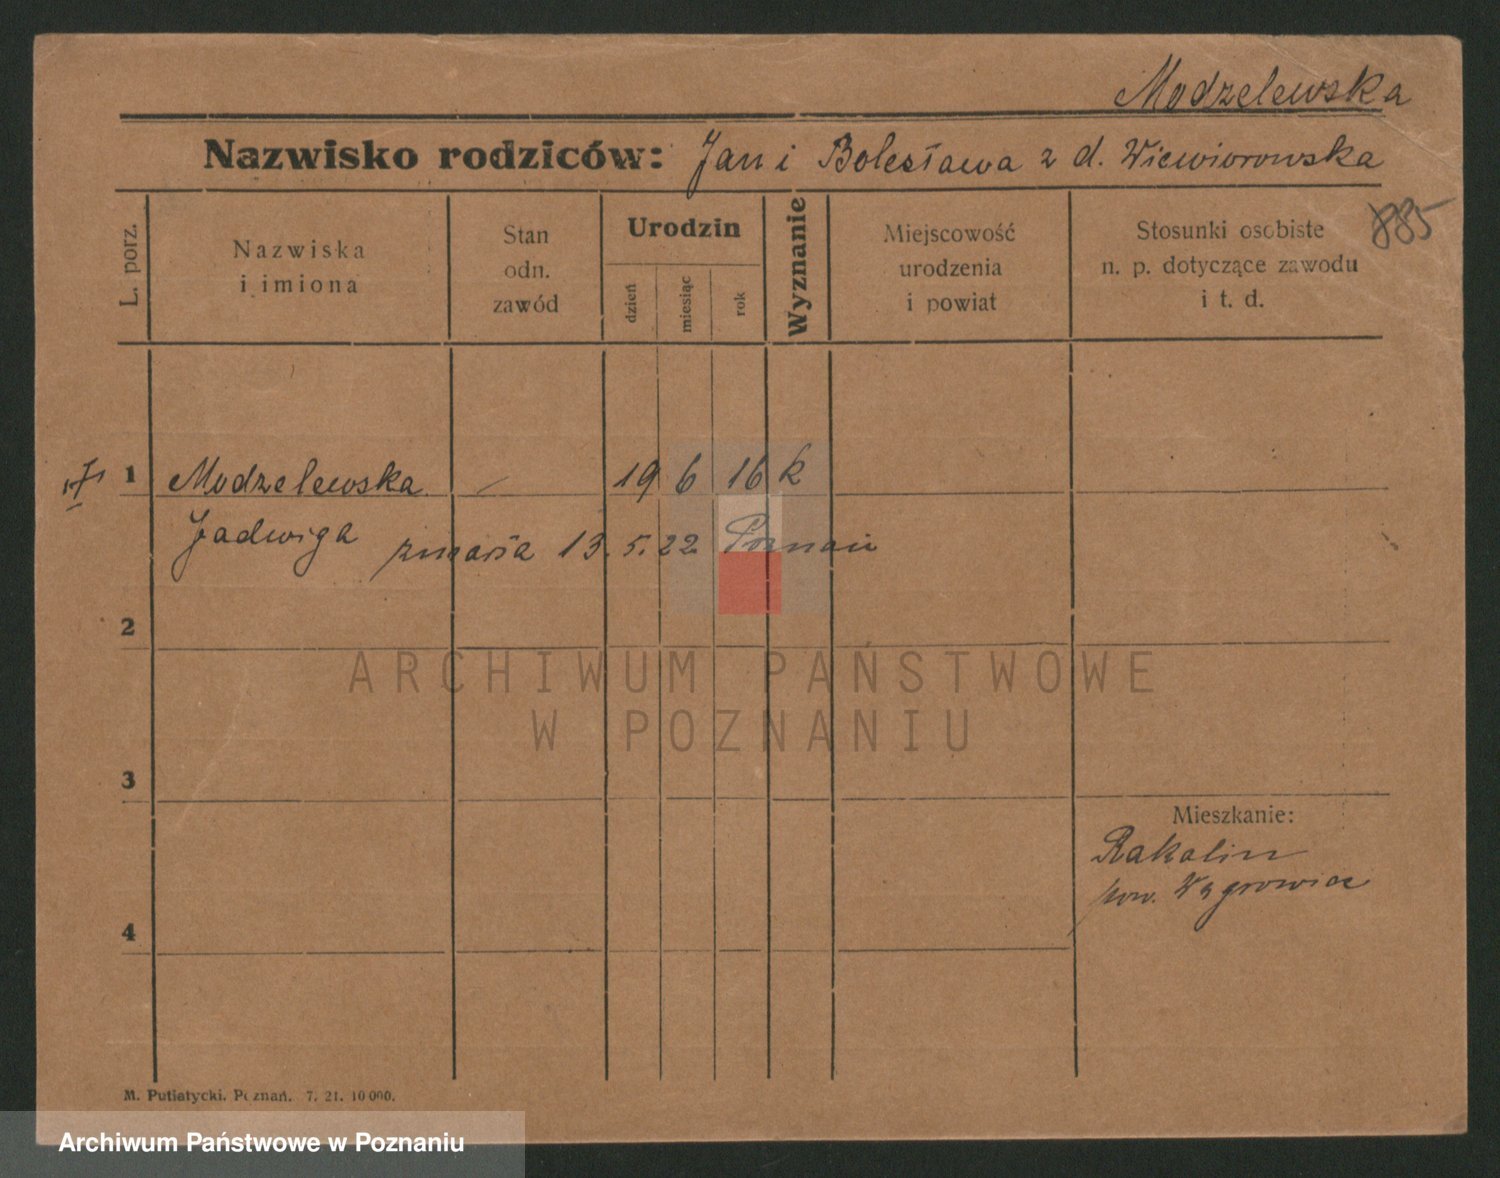 Modzelewska
Nazwisko rodziców: Jan i Bolesława z d. Wiewiorowska
885
L. porz.
Nazwiska
i imiona
Stan
odn.
zawód
Urodzin
dzień
miesiąc
rok
Wyznanie
Miejscowość
urodzenia
i powiat
Stosunki osobiste
n. p. dotyczące zawodu
i t. d.
1 Modzelewska 19 6 16 k
Jadwiga zmarła 13. 5. 22 Poznań
2
ARCHIWUM PAŃSTWOWE
W POZNANIU
3
Mieszkanie:
Rakolin
pow. Wągrowiec
4
M. Putiatycki. Poznań. 7. 21. 10 000.
Archiwum Państwowe w Poznaniu